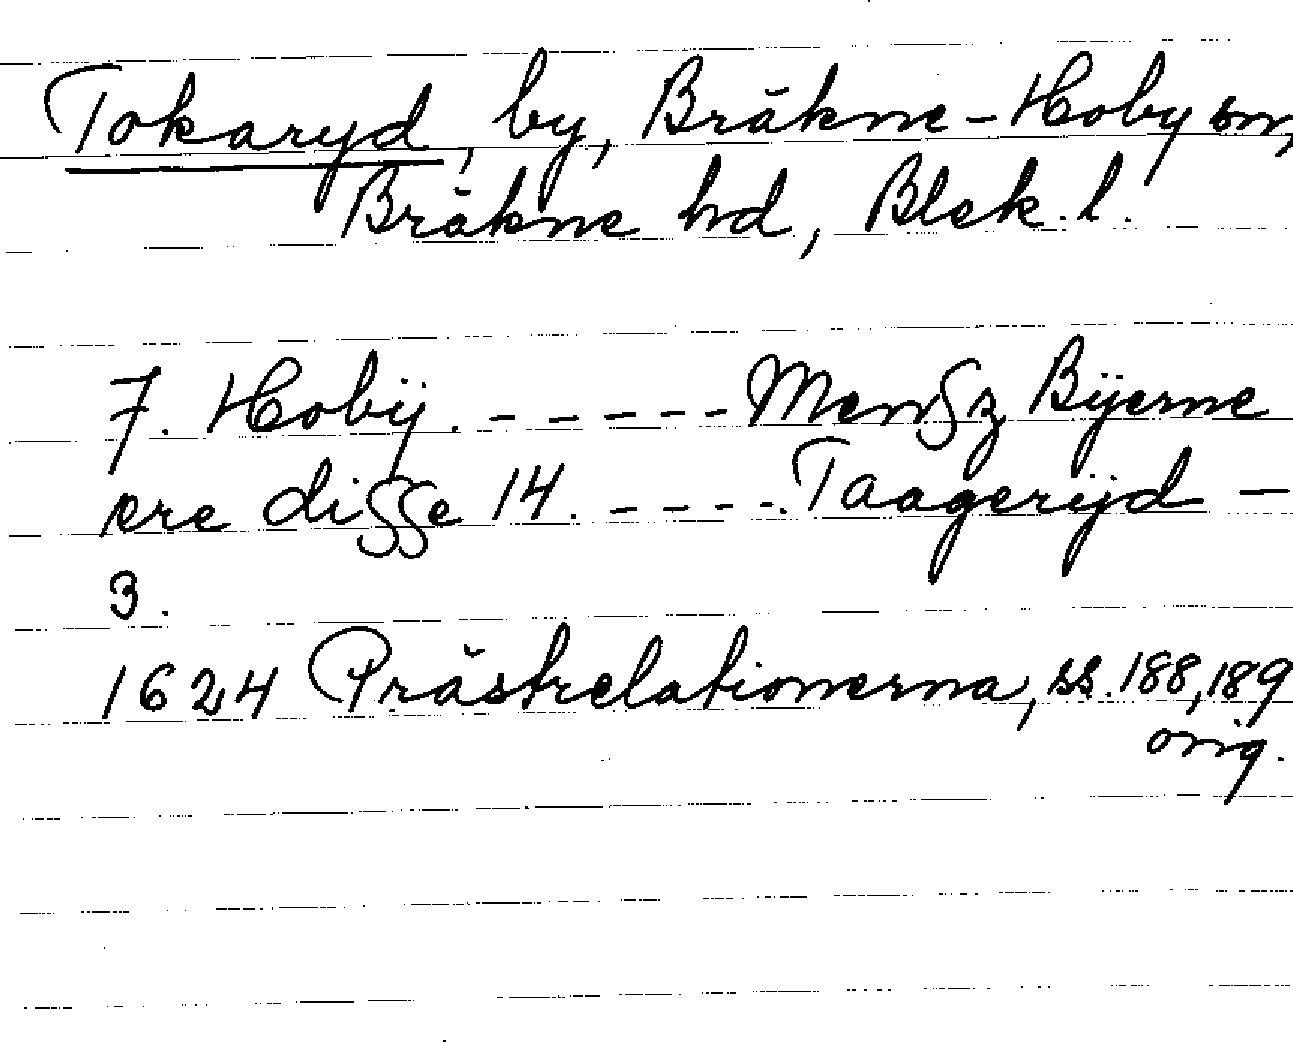 Tokaryd, by, Bräkne-Hoby sn,
Bräkne hd, Blek. l.
7. Hobÿ. ----- Menſz Bÿerne
ere diſſe 14. ----. Taagerÿd —
3.
1624 Prästrelationerna, ss. 188, 189
orig.